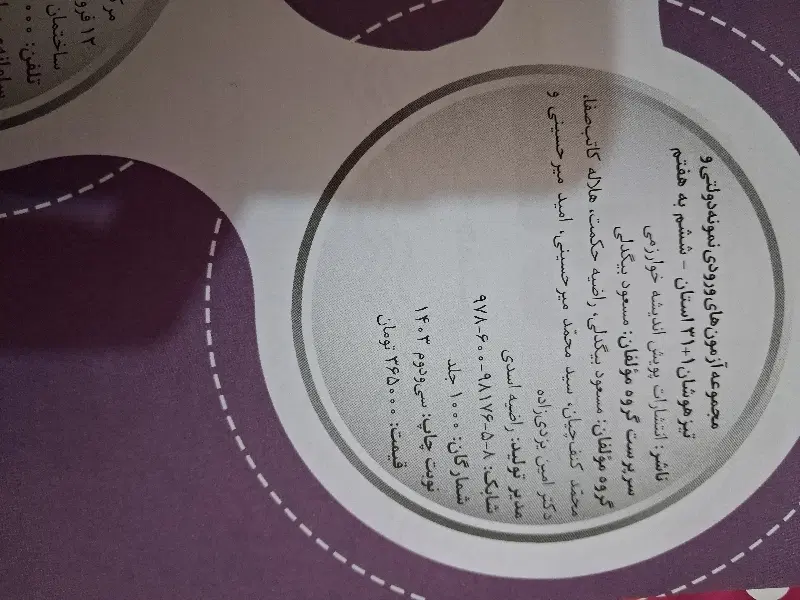 مجموعه آزمون‌های ورودی نمونه‌دولتی و
تیزهوشان ۱+۳۱ استان - ششم به هفتم
ناشر: انتشارات پویش اندیشه خوارزمی
سرپرست گروه مؤلفان: مسعود بیگدلی
گروه مؤلفان: مسعود بیگدلی، راضیه حکمت، هلاله کاتب‌صفا،
محمّد کنف‌چیان، سید محمّد میرحسینی، امید میرحسینی و
دکتر امین یزدی‌زاده
مدیر تولید: راضیه اسدی
شابک: ۸-۵-۹۸۱۷۶-۶۰۰-۹۷۸
شمارگان: ۱۰۰۰ جلد
نوبت چاپ: سی‌ودوم ۱۴۰۳
قیمت: ۳۶۵۰۰۰ تومان
ساختمان
تلفن: